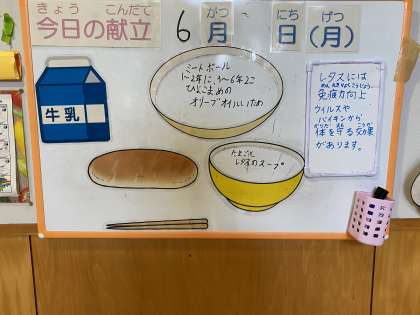 きょう こんだて
今日の献立
6
がつ
月
にち
日
げつ
(月)
牛乳
ミートボール
1~2年に、3~6年2こ
ひよこまめの
オリーブオイルいため
たまごと
レタスのスープ
レタスには
免疫力向上
ウイルスや
バイキンから
体を守る効果
があります。